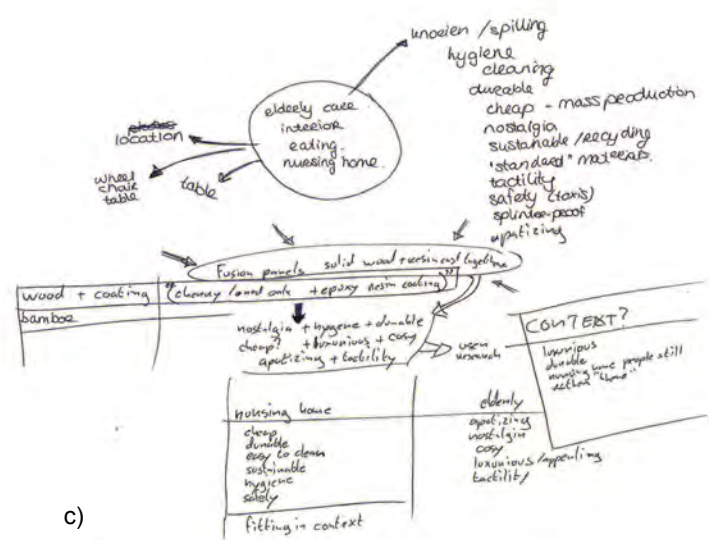 knoeien / spilling
hygiene
cleaning
dureable
cheap - mass production
nostalgia
sustainable / recycling
"standard" materials.
tactility
safety (toxis)
splinter-proof
apatizing
elderly care
interior
eating.
nursing home.
location
wheel
chair
table
table
Fusion panels solid wood + resin cast together
wood + coating
(cherry / and oak + epoxy resin coating)
bamboe
nostalgia + hygene + durable
cheap? + luxurious + cosy
apatizing + tactility
user
research
CONTEXT?
luxurious
durable
nursing home people still
"home"
nursing home
cheap
durable
easy to clean
sustainable
hygiene
safety
fitting in context
elderly
apatizing
nostalgia
cosy
luxurious / appealing
tactility
c)